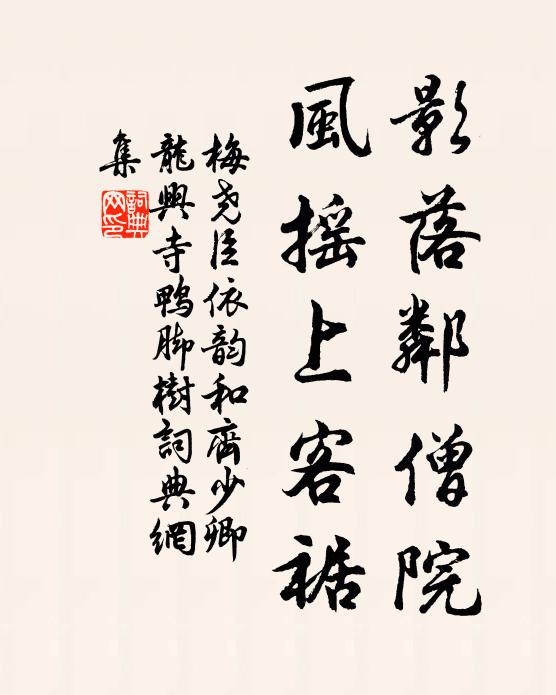 影落鄰僧院
風摇上客裾
梅尭臣依韵和齊少卿
龍興寺鴨脚樹詞典網
集
詞典
网印